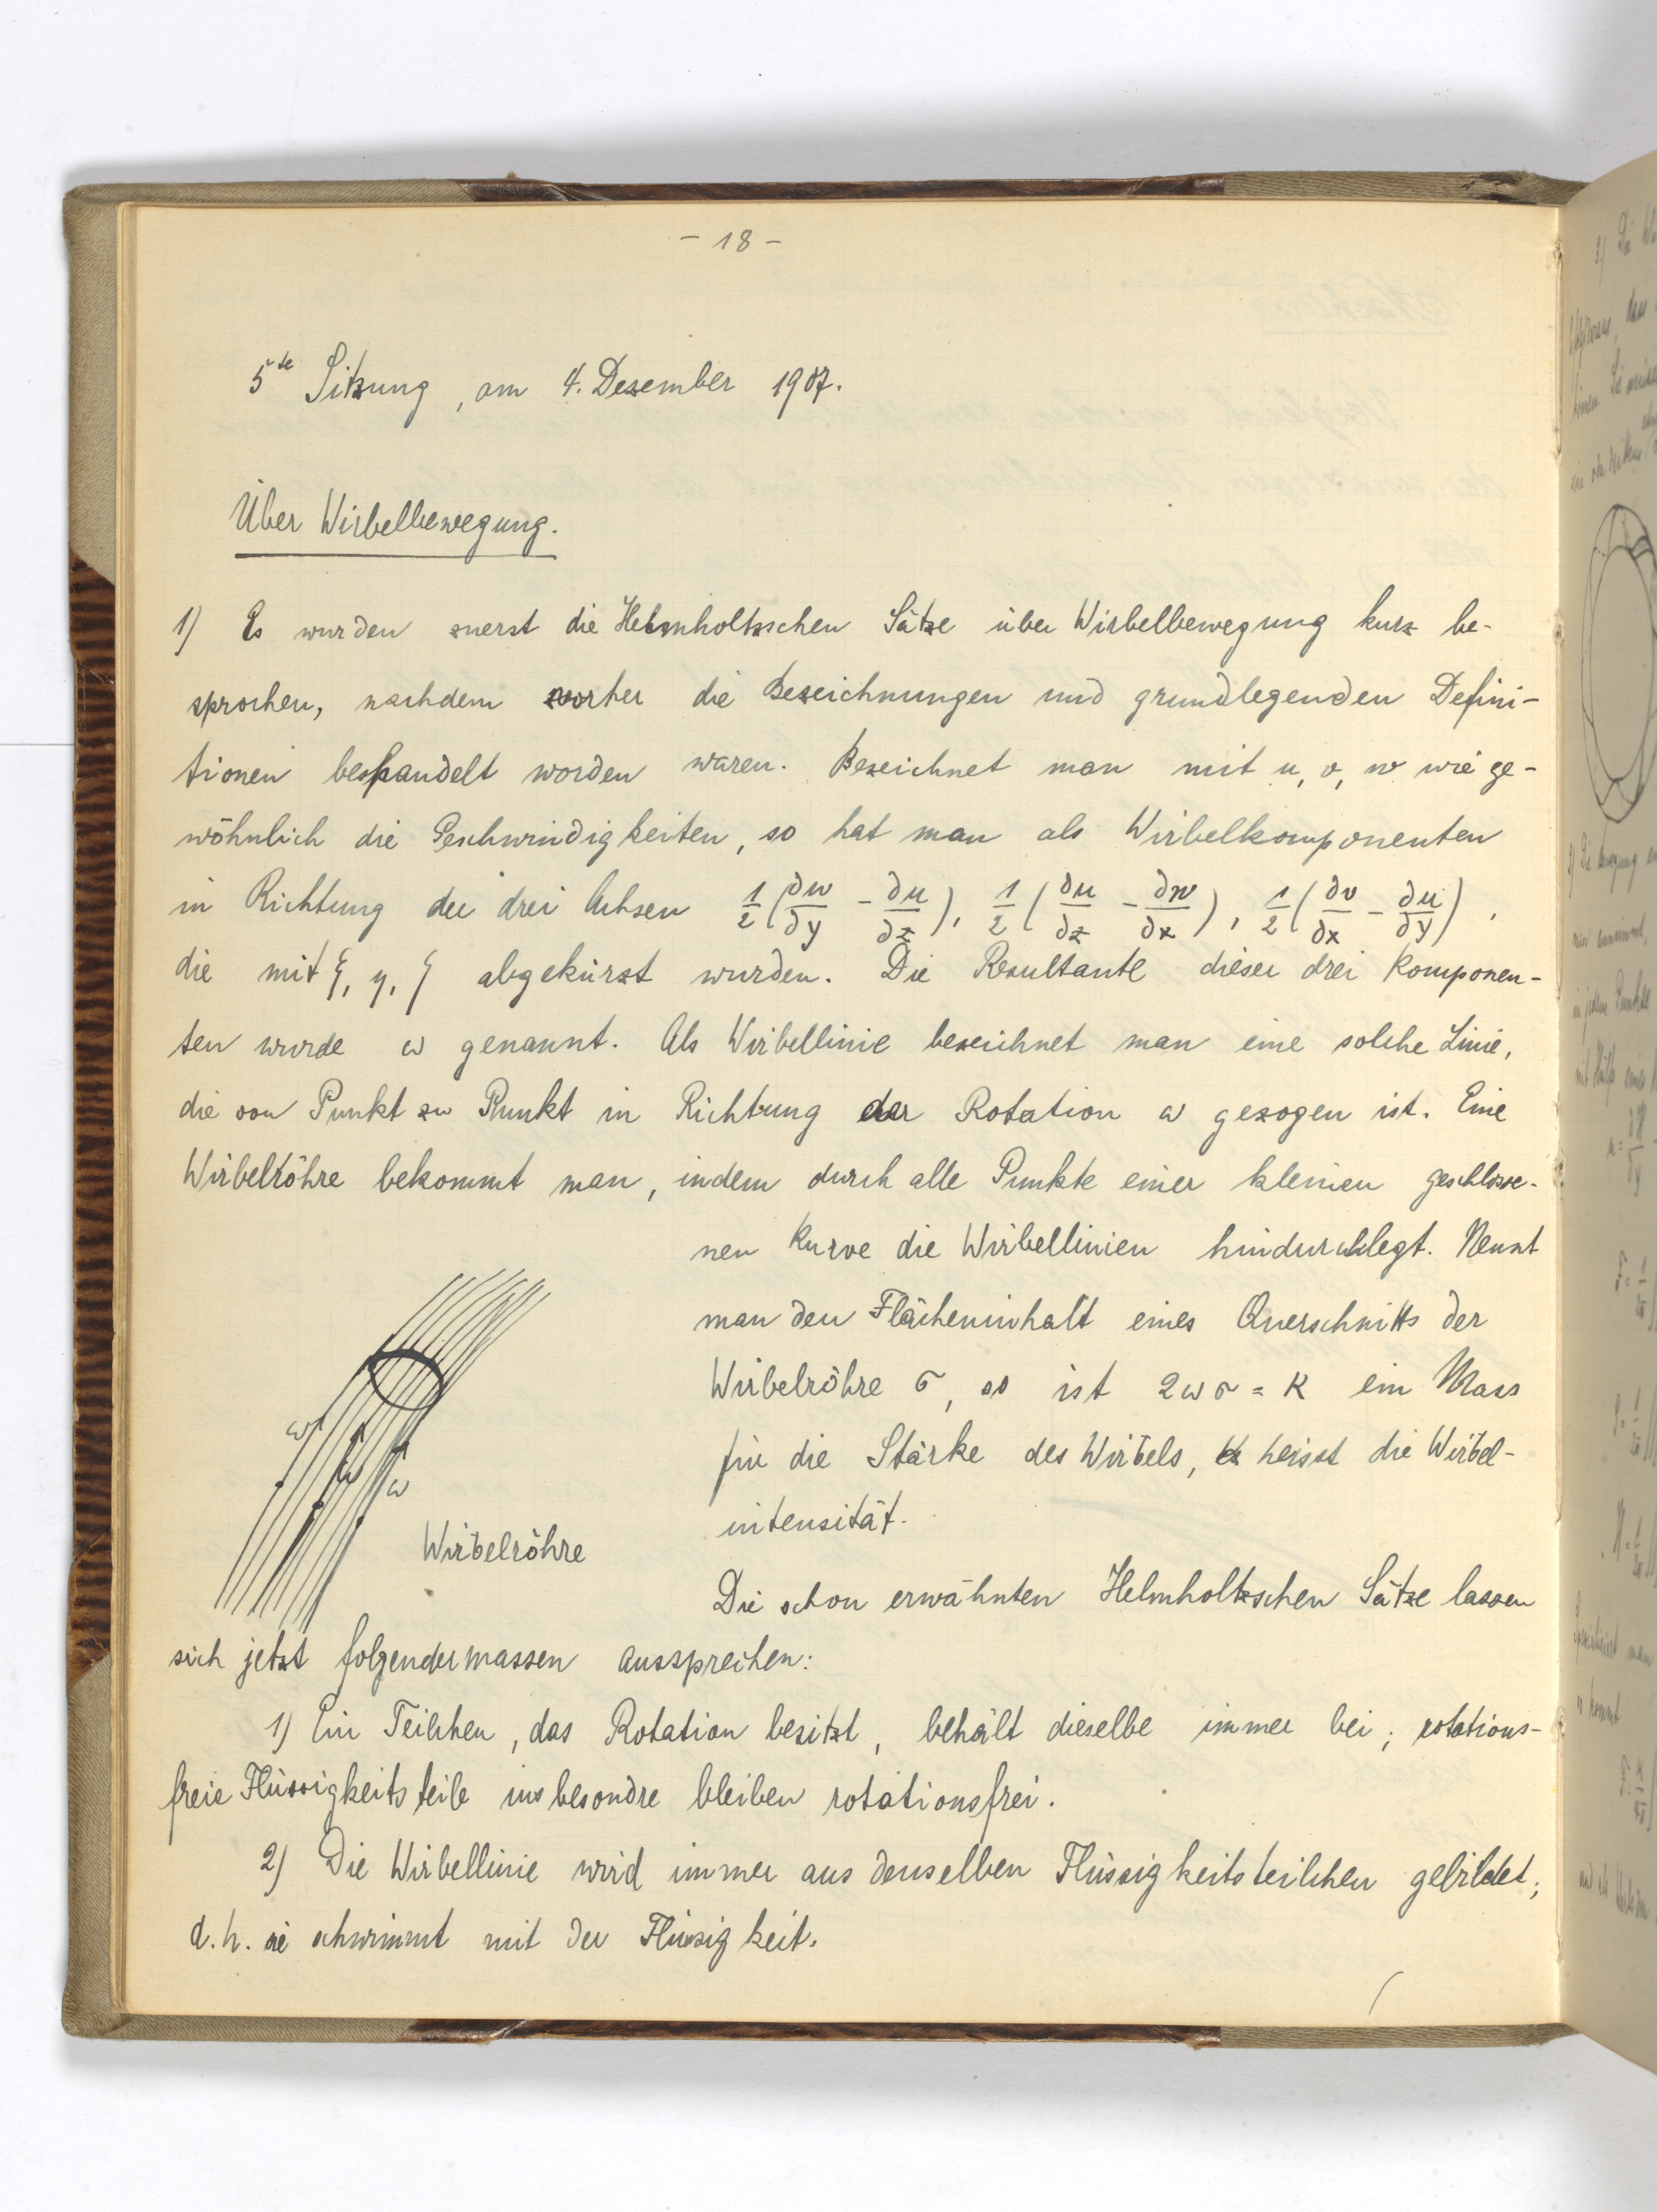 - 18 -
5te Sitzung, am 4. Dezember 1907.
Über Wirbelbewegung.
1) Es wurden zuerst die Helmholtzschen Sätze über Wirbelbewegung kurz be-
sprochen, nachdem vorher die Bezeichnungen und grundlegenden Defini-
tionen behandelt worden waren. Bezeichnet man mit u, v, w wie ge-
wöhnlich die Geschwindigkeiten, so hat man als Wirbelkomponenten
in Richtung der drei Achsen 1/2 (∂w/∂y - ∂u/∂z), 1/2 (∂u/∂z - ∂w/∂x), 1/2 (∂v/∂x - ∂u/∂y),
die mit ξ, η, ζ abgekürzt wurden. Die Resultante dieser drei Komponen-
ten wurde ω genannt. Als Wirbellinie bezeichnet man eine solche Linie,
die von Punkt zu Punkt in Richtung der Rotation ω gezogen ist. Eine
Wirbelröhre bekommt man, indem durch alle Punkte einer kleinen geschlosse-
nen Kurve die Wirbellinien hindurchlegt. Nennt
man den Flächeninhalt eines Querschnitts der
Wirbelröhre σ, so ist 2ωσ = K ein Mass
für die Stärke des Wirbels, K heisst die Wirbel-
intensität.
ω
ω
ω
Wirbelröhre
Die schon erwähnten Helmholtzschen Sätze lassen
sich jetzt folgendermassen aussprechen:
1) Ein Teilchen, das Rotation besitzt, behält dieselbe immer bei; rotations-
freie Flüssigkeitsteile insbesondre bleiben rotationsfrei.
2) Die Wirbellinie wird immer aus denselben Flüssigkeitsteilchen gebildet;
d.h. sie schwimmt mit der Flüssigkeit.